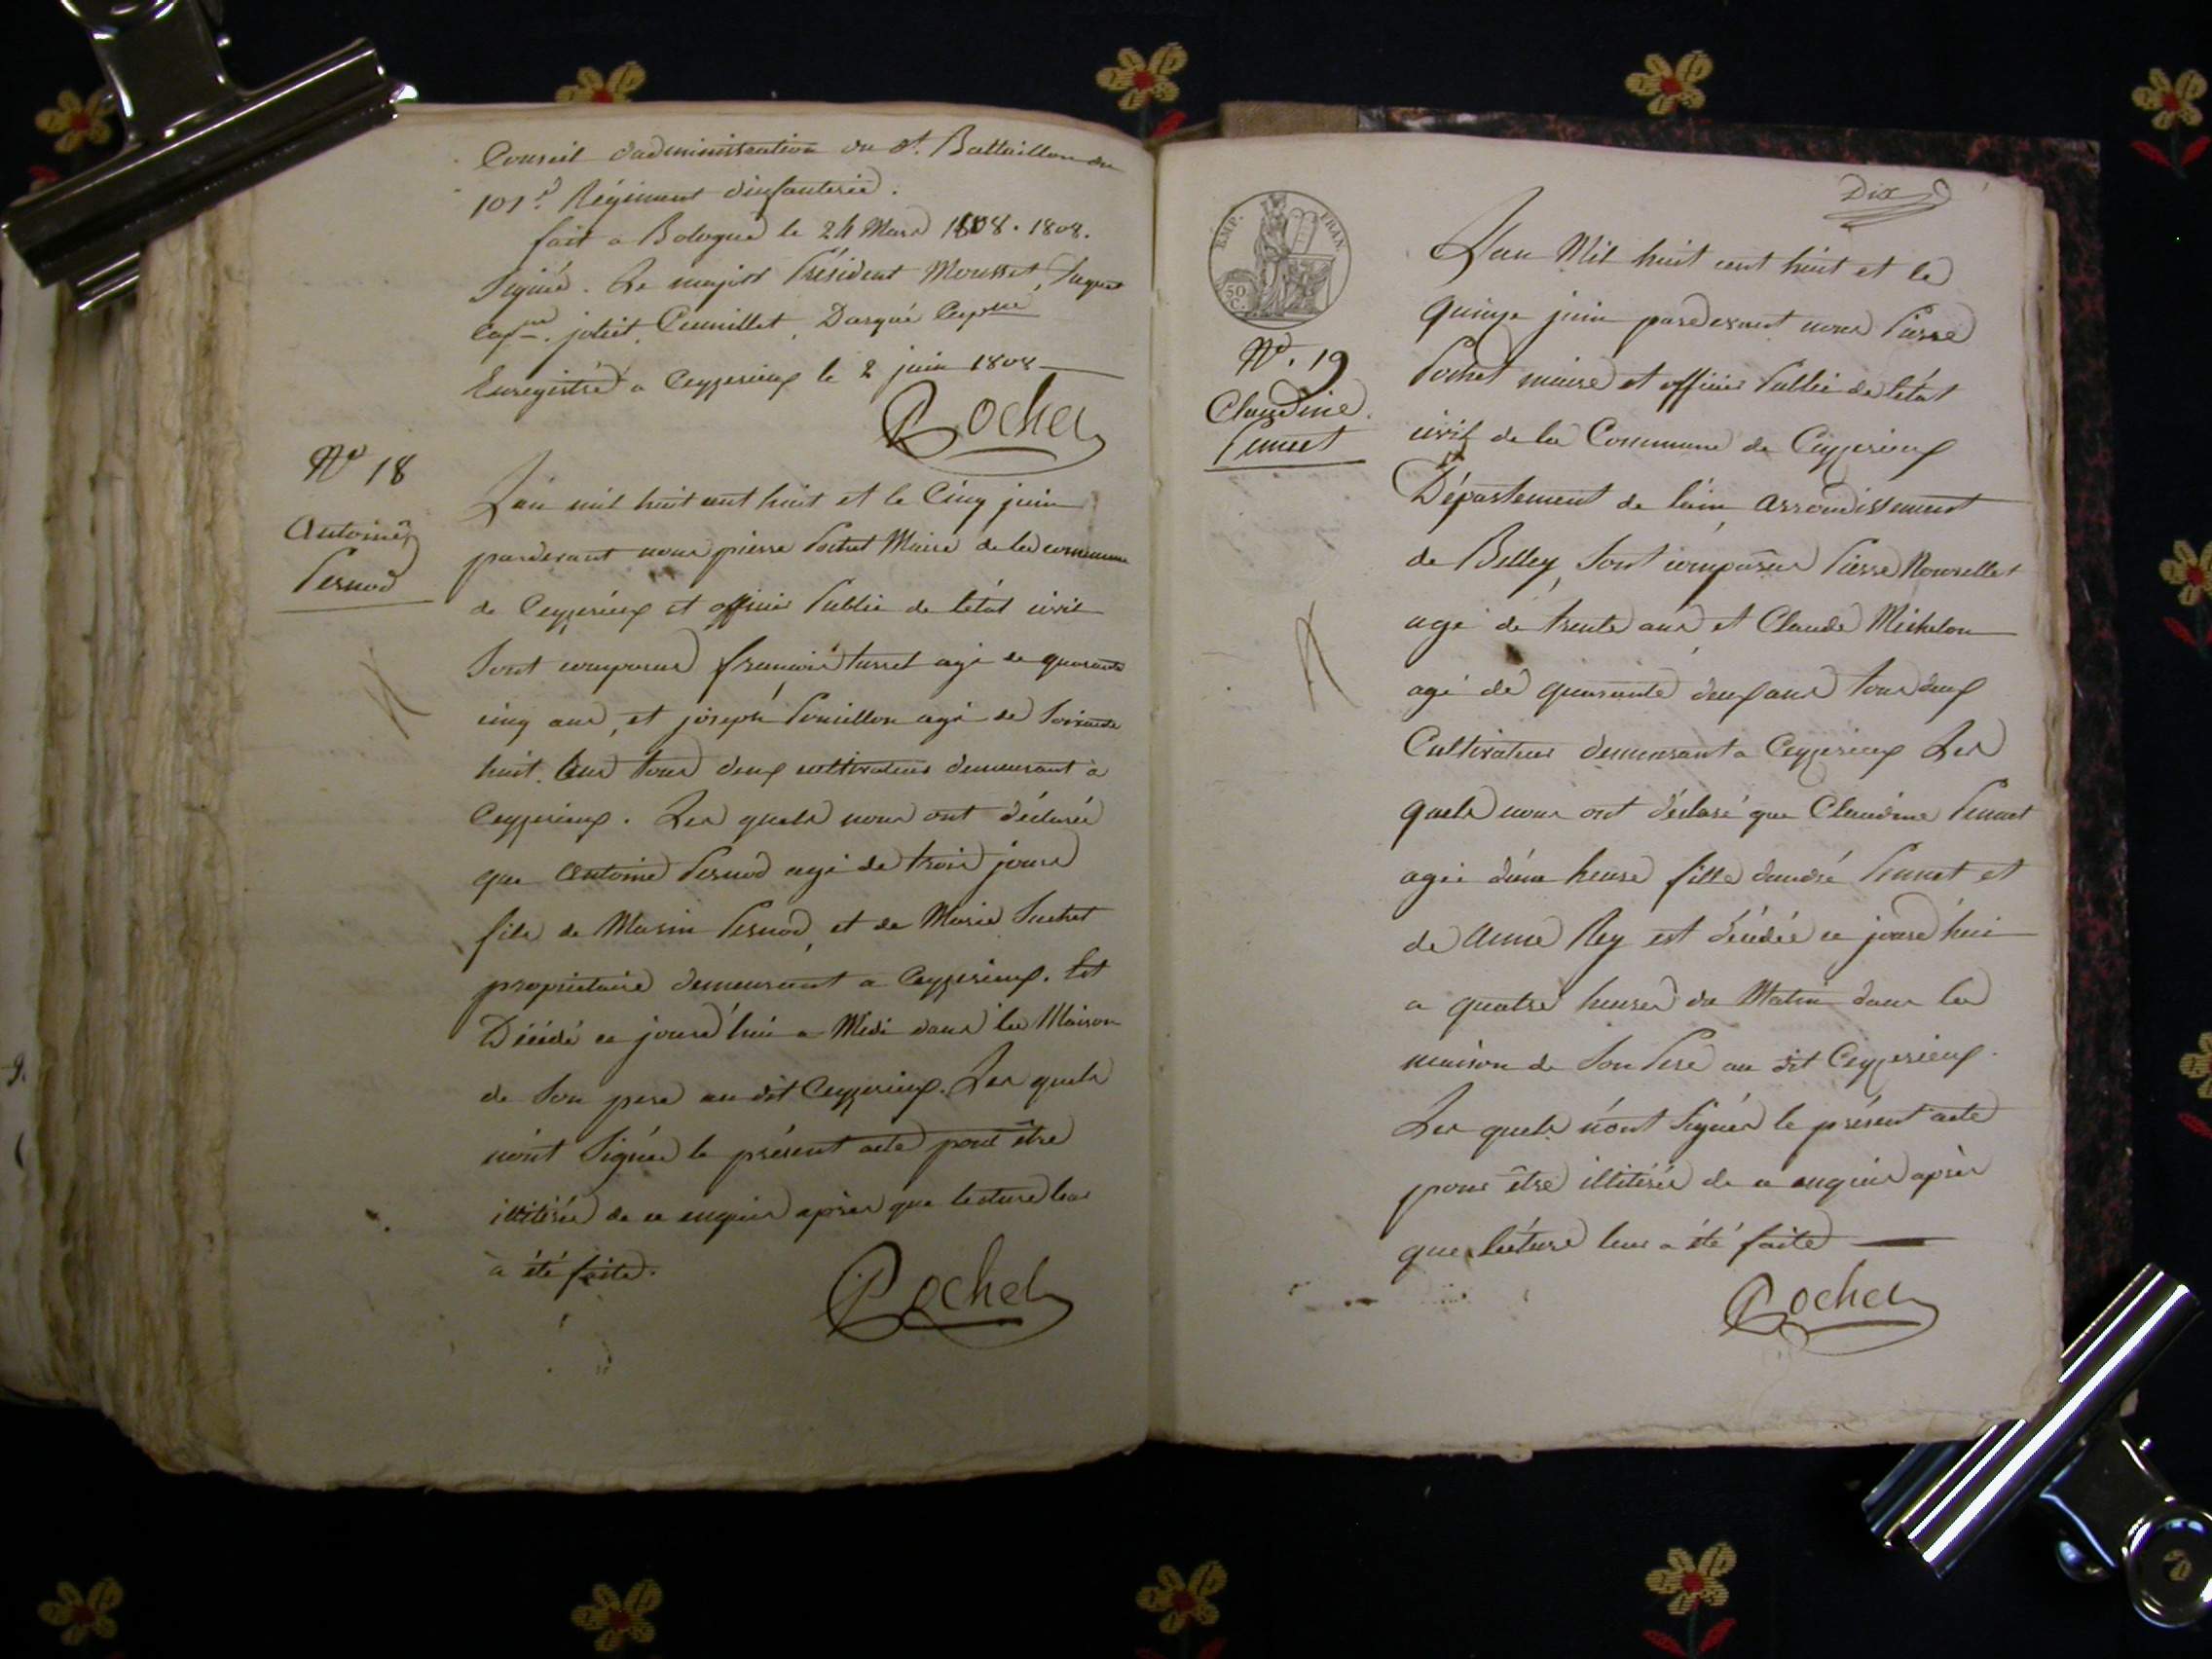 Conseil d'administration du dt. Battaillon du
101e. Régiment d'infanterie.
fait a Bologne le 24 Mars 1808. 1808.
Signé. Le major Président Mousset,
Capne. joliet, Dargué Capne
Enregistré a Ceyzerieux le 2 juin 1808
Pochet
No 18
Antoine
Pernod
L'an mil huit cent huit et le Cinq juin
pardevant nous pierre Pochet Maire de la commune
de Ceyzérieux et officier Public de l'état civil
Sont comparus francois turrel agé de quarante
cinq ans, et joseph agé de Soixante
huit ans tous deux cultivateurs demeurant à
Ceyzerieux. Les quels nous ont déclarés
que Antoine Pernod agé de trois jours
fils de Marin Pernod, et de Marie Suchet
propriétaire demeurant a Ceyzerieux. Est
Décédé ce jourd'hui a Midi dans la Maison
de Son pere au dit Ceyzerieux. Les quels
n'ont Signés le présent acte pour être
illitérés de ce enquis après que lecture leur
a été faite.
Pochet
Dix
EMP. FRAN.
50 C.
No. 19
Claudine
Pennet
L'an Mil huit cent huit et le
quinze juin pardevant nous Pierre
Pochet maire et officier Public de l'état
civil de la Commune de Ceyzerieux
Département de l'ain, arrondissement
de Belley, Sont comparus Pierre Nouvellet
agé de trente ans et Claude Michelon
agé de quarante deux ans tous deux
Cultivateurs demeurant a Ceyzerieux Les
quels nous ont déclaré que Claudine Pennet
agée d'une heure fille d'andré Pennet et
de Anne Rey est décédée ce jourd'hui
a quatre heures du Matin dans la
maison de Son Pere au dit Ceyzerieux.
Les quels n'ont Signés le présent acte
pour être illitérés de ce enquis après
que lecture leur a été faite
Pochet